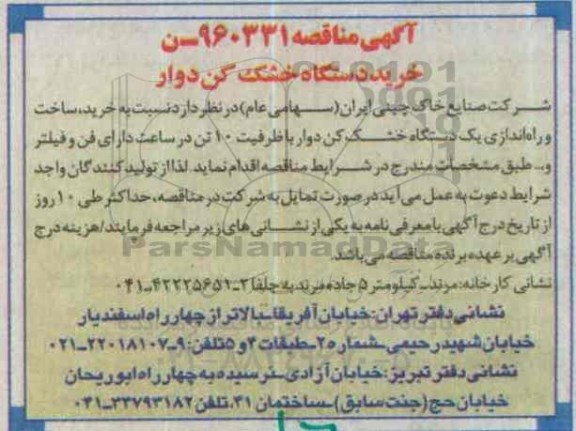 آگهی مناقصه ۹۶۰۳۳۱-ن
خرید دستگاه خشک کن دوار
شرکت صنایع خاک چینی ایران (سهامی عام) در نظر دارد نسبت به خرید، ساخت
و راه‌اندازی یک دستگاه خشک کن دوار با ظرفیت ۱۰ تن در ساعت دارای فن و فیلتر
و... طبق مشخصات مندرج در شرایط مناقصه اقدام نماید. لذا از تولید کنندگان واجد
شرایط دعوت به عمل می آید در صورت تمایل به شرکت در مناقصه، حداکثر طی ۱۰ روز
از تاریخ درج آگهی با معرفی نامه به یکی از نشانی های زیر مراجعه فرمایند/هزینه درج
آگهی بر عهده برنده مناقصه می باشد.
ParsNamadData
نشانی کارخانه: مرند- کیلومتر ۵ جاده مرند به جلفا ۲-۴۲۲۲۵۶۵۱-۰۴۱
نشانی دفتر تهران: خیابان آفریقا- بالاتر از چهارراه اسفندیار
خیابان شهید رحیمی- شماره ۲- طبقات ۴ و ۵ تلفن: ۹-۲۲۰۱۸۱۰۷-۰۲۱
نشانی دفتر تبریز: خیابان آزادی- نرسیده به چهارراه ابوریحان
خیابان حج (جنت سابق)- ساختمان ۳۱. تلفن ۳۳۷۹۳۱۸۲-۰۴۱